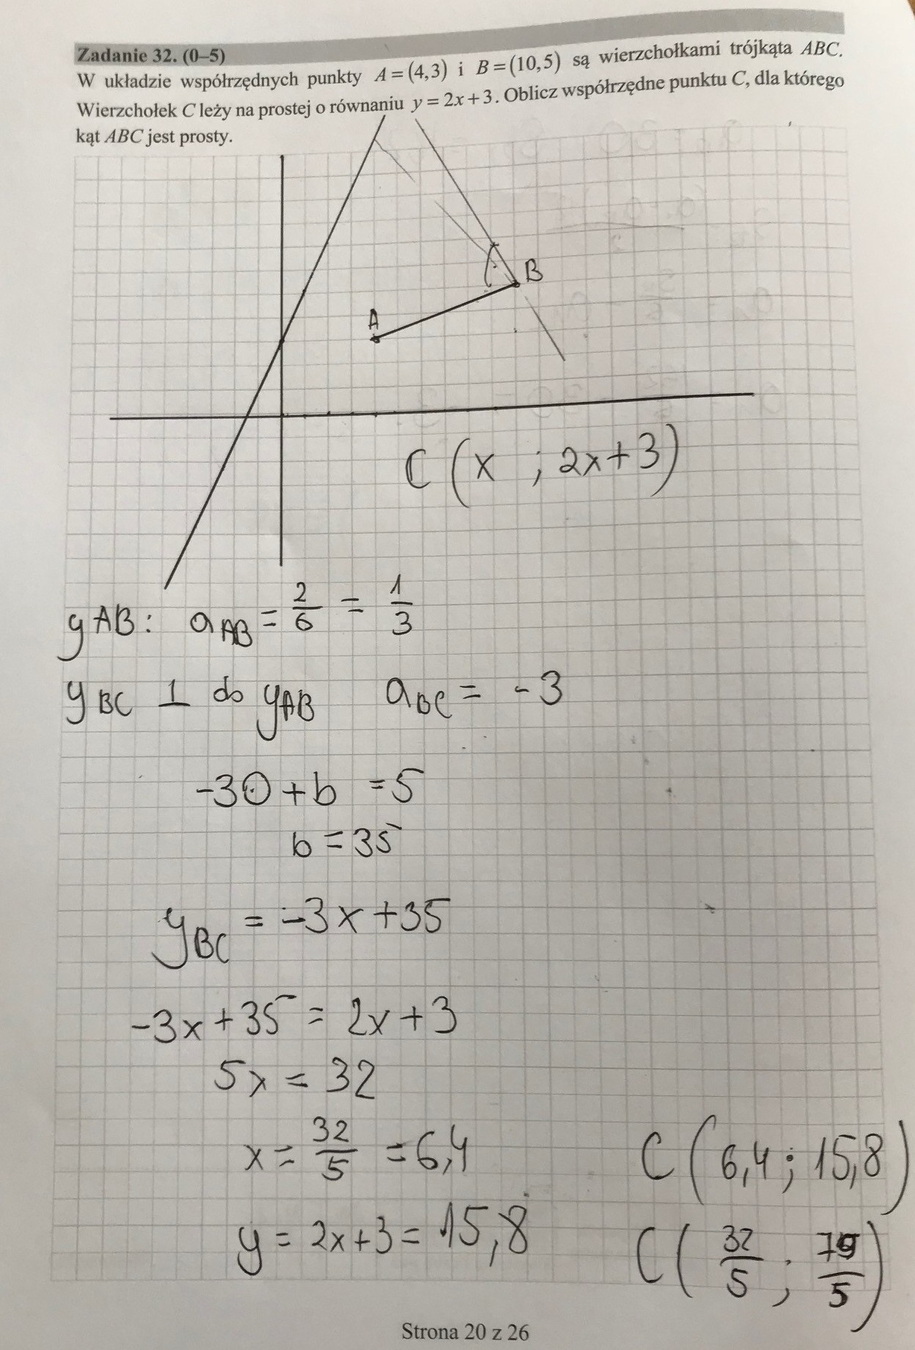 Zadanie 32. (0–5)
W układzie współrzędnych punkty A = (4,3) i B = (10,5) są wierzchołkami trójkąta ABC.
Wierzchołek C leży na prostej o równaniu y = 2x + 3. Oblicz współrzędne punktu C, dla którego
kąt ABC jest prosty.
B
A
C (x ; 2x+3)
yAB: aAB = 2/6 = 1/3
yBC ⊥ do yAB aBC = -3
-30 + b = 5
b = 35
yBC = -3x + 35
-3x + 35 = 2x + 3
5x = 32
x = 32/5 = 6,4
C (6,4 ; 15,8)
y = 2x + 3 = 15,8
C (32/5 ; 79/5)
Strona 20 z 26